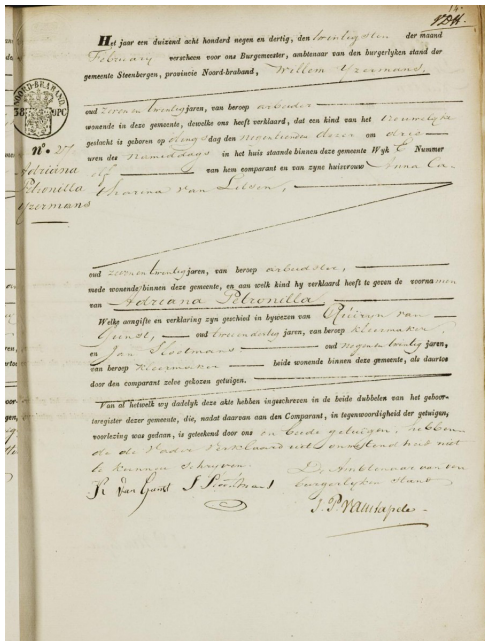 Het jaar een duizend acht honderd negen en dertig, den twintigsten der maand
February verscheen voor ons Burgemeester, ambtenaar van den burgerlyken stand der
gemeente Steenbergen, provincie Noord-braband, Willem Yzermans,
NOORD-BRABAND
38 OPC
oud zeven en twintig jaren, van beroep arbeider
wonende in deze gemeente, dewelke ons heeft verklaard, dat een kind van het vrouwelyke
geslacht is geboren op dingsdag den negentienden dezer om drie
N°. 27
uren des namiddags in het huis staande binnen deze gemeente Wyk C Nummer
Adriana
Petronilla
Yzermans
van hem comparant en van zyne huisvrouw Anna Ca-
tharina van
oud zeven en twintig jaren, van beroep arbeidster,
mede wonende binnen deze gemeente, en aan welk kind hy verklaard heeft te geven de voornamen
van Adriana Petronilla
Welke aangifte en verklaring zyn geschied in bywezen van van
Gunst, oud tweeendertig jaren, van beroep kleermaker,
en Jan Slootmans oud negenentwintig jaren,
van beroep kleermaker beide wonende binnen deze gemeente, als daartoe
door den comparant zelve gekozen getuigen.
Van al hetwelk wy dadelyk deze akte hebben ingeschreven in de beide dubbelen van het geboor-
teregister dezer gemeente, die, nadat daarvan aan den Comparant, in tegenwoordigheid der getuigen,
voorlezing was gedaan, is geteekend door ons en beide getuigen, hebbende
de Vader verklaard uit onkunde niet
te kunnen schryven.
De Ambtenaar van den
burgerlyken stand
R van Gunst J Slootmans